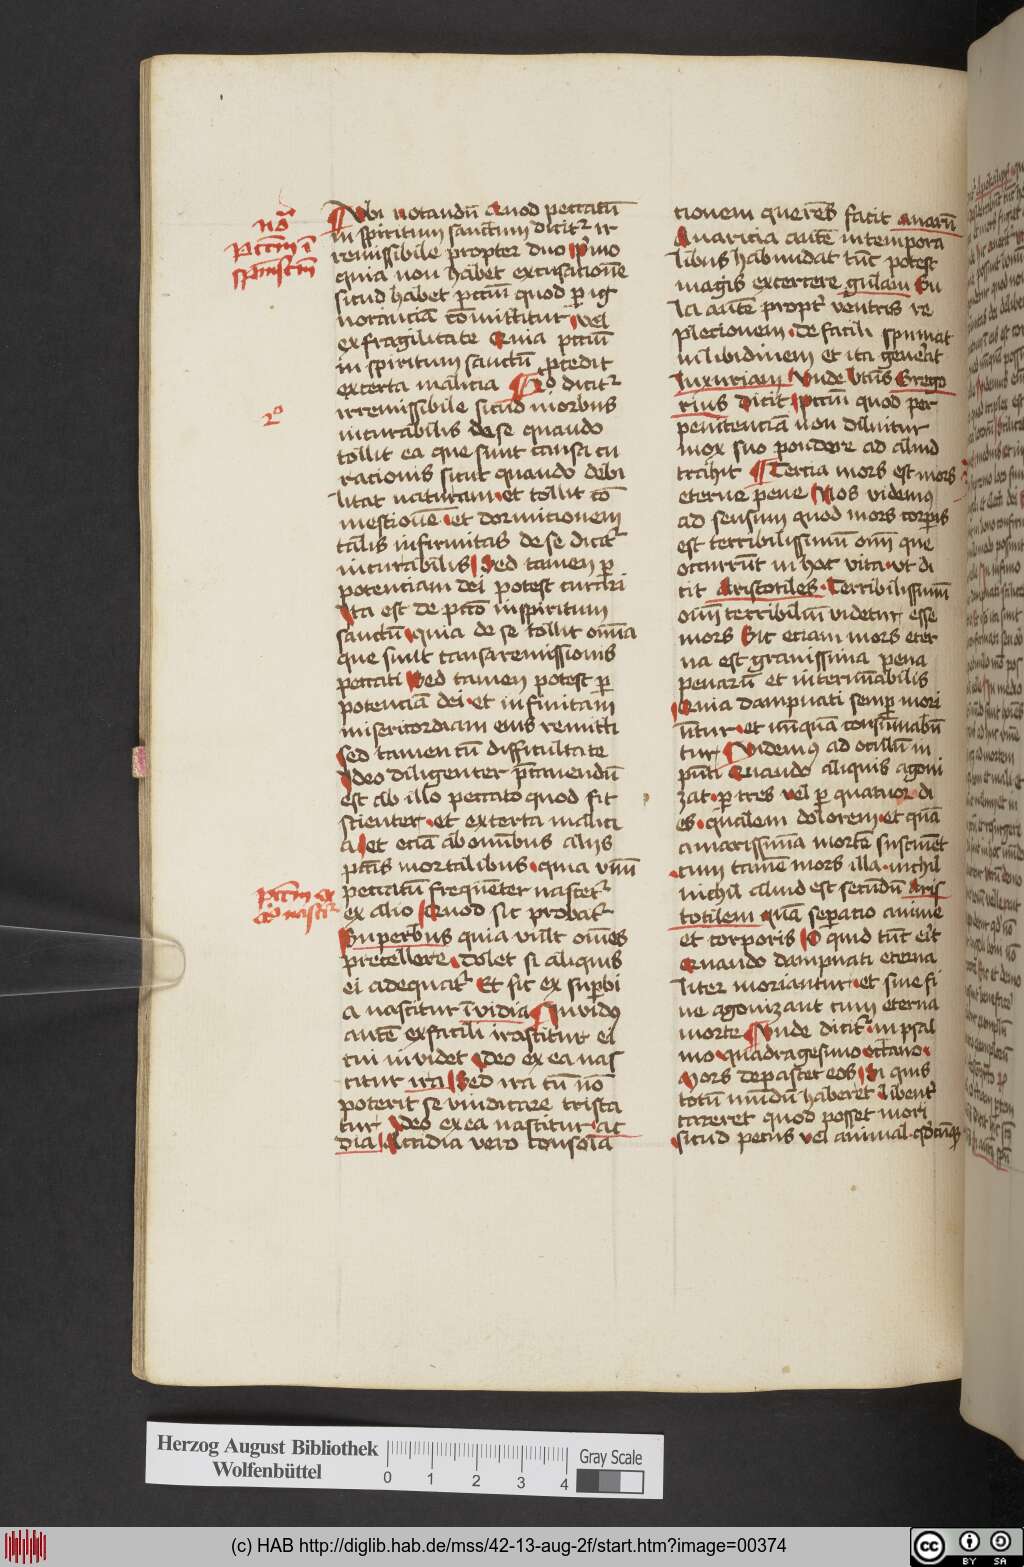 nō
Pctm ī
spm̄scm̄
2º
Pctm ex
alio nascit᷑
Ubi notandū Quod peccatū
in spiritum sanctum dicit᷑ ir
remissibile propter duo p̄mo
quia non habet excusacionē
sicud habet pctm̄ quod ꝑ ig
norānciā cōmittitur vel
ex fragilitate Quia pctm̄
in spiritum sanctū ꝓcedit
ex certa malicia 2º dicit᷑
irremissibile sicud morbus
incurabilis de se quando
tollit ea que sunt causa cu
racionis sicut quando debi
litat naturam et tollit cō
mestionē et dormicionem
talis infirmitas de se dicit᷑
incurabilis Sed tamen ꝑ
potenciam dei potest curari
Ita est de pctō in spiritum
sanctū quia de se tollit om̄ia
que sunt causa remissionis
peccati Sed tamen potest ꝑ
potenciā dei et infinitam
misericordiam eius remitti
Sed tamen cū difficultate
Ideo diligenter p̄cauendū
est ab illo peccato quod fit
scienter et ex certa malici
a et eciā ab omnibus aliis
pctīs mortalibus quia vnū
peccatū frequenter nascet᷑
ex alio Quod sic probat᷑
Superbus quia vult om̄es
precellere dolet si aliquis
ei adequat᷑ Et sic ex suꝑbi
a nascitur īvidia Invidꝰ
autē ex facili irascitur ei
cui invidet Ideo ex ea nas
citur ira Sed ira cū nō
poterit se vindicare trista
tur Ideo ex ea nascitur ac
dia Accidia vero consola
cionem querēs facit auarū
Auaricia autē in tempora
libus habundat tūc potest
magis excercere gulam Gu
la autē propt᷑ ventris re
plecionem de facili spumat
in libidinem et ita generat
luxuriam Vnde btūs Grego
rius dicit pctm̄ quod per
penitenciā non diluitur
mox suo pondere ad aliud
trahit Tercia mors est mors
eterne pene Nos videmꝰ
ad sensum quod mors corꝑis
est terribilissimū om̄i que
occurrūt in hoc vita vt di
cit Aristotiles Terribilissimū
om̄i terribiliū videtur esse
mors Sic eciam mors eter
na est grauissima pena
penarū et interminabilis
Quia dampnati semꝑ mori
ūtur et nūquā consūmabū
tur Videmꝰ ad occulū in
pūcti Quando aliquis agoni
zat ꝑ tres vel ꝑ quatuor di
es qualem dolorem et quā
amarissimā mortē sustinēt
cum tamē mors illa nichil
nichil aliud est secūdū Aris
totilem quā seꝑatio anime
et corporis O quid tūc er̄t
Quando dampnati eterna
liter moriantur et sine fi
ne agonizant cum eterna
morte Vnde dicit᷑ in psal
mo quadragesimo octauo
Mors depascet eos Si quis
totū mūdū haberet libent᷑
careret quod posset mori
sicud pecus vel animal qd̄cūqꝫ
Herzog August Bibliothek
Wolfenbüttel
0 1 2 3 4
Gray Scale
(c) HAB http://diglib.hab.de/mss/42-13-aug-2f/start.htm?image=00374
cc BY SA